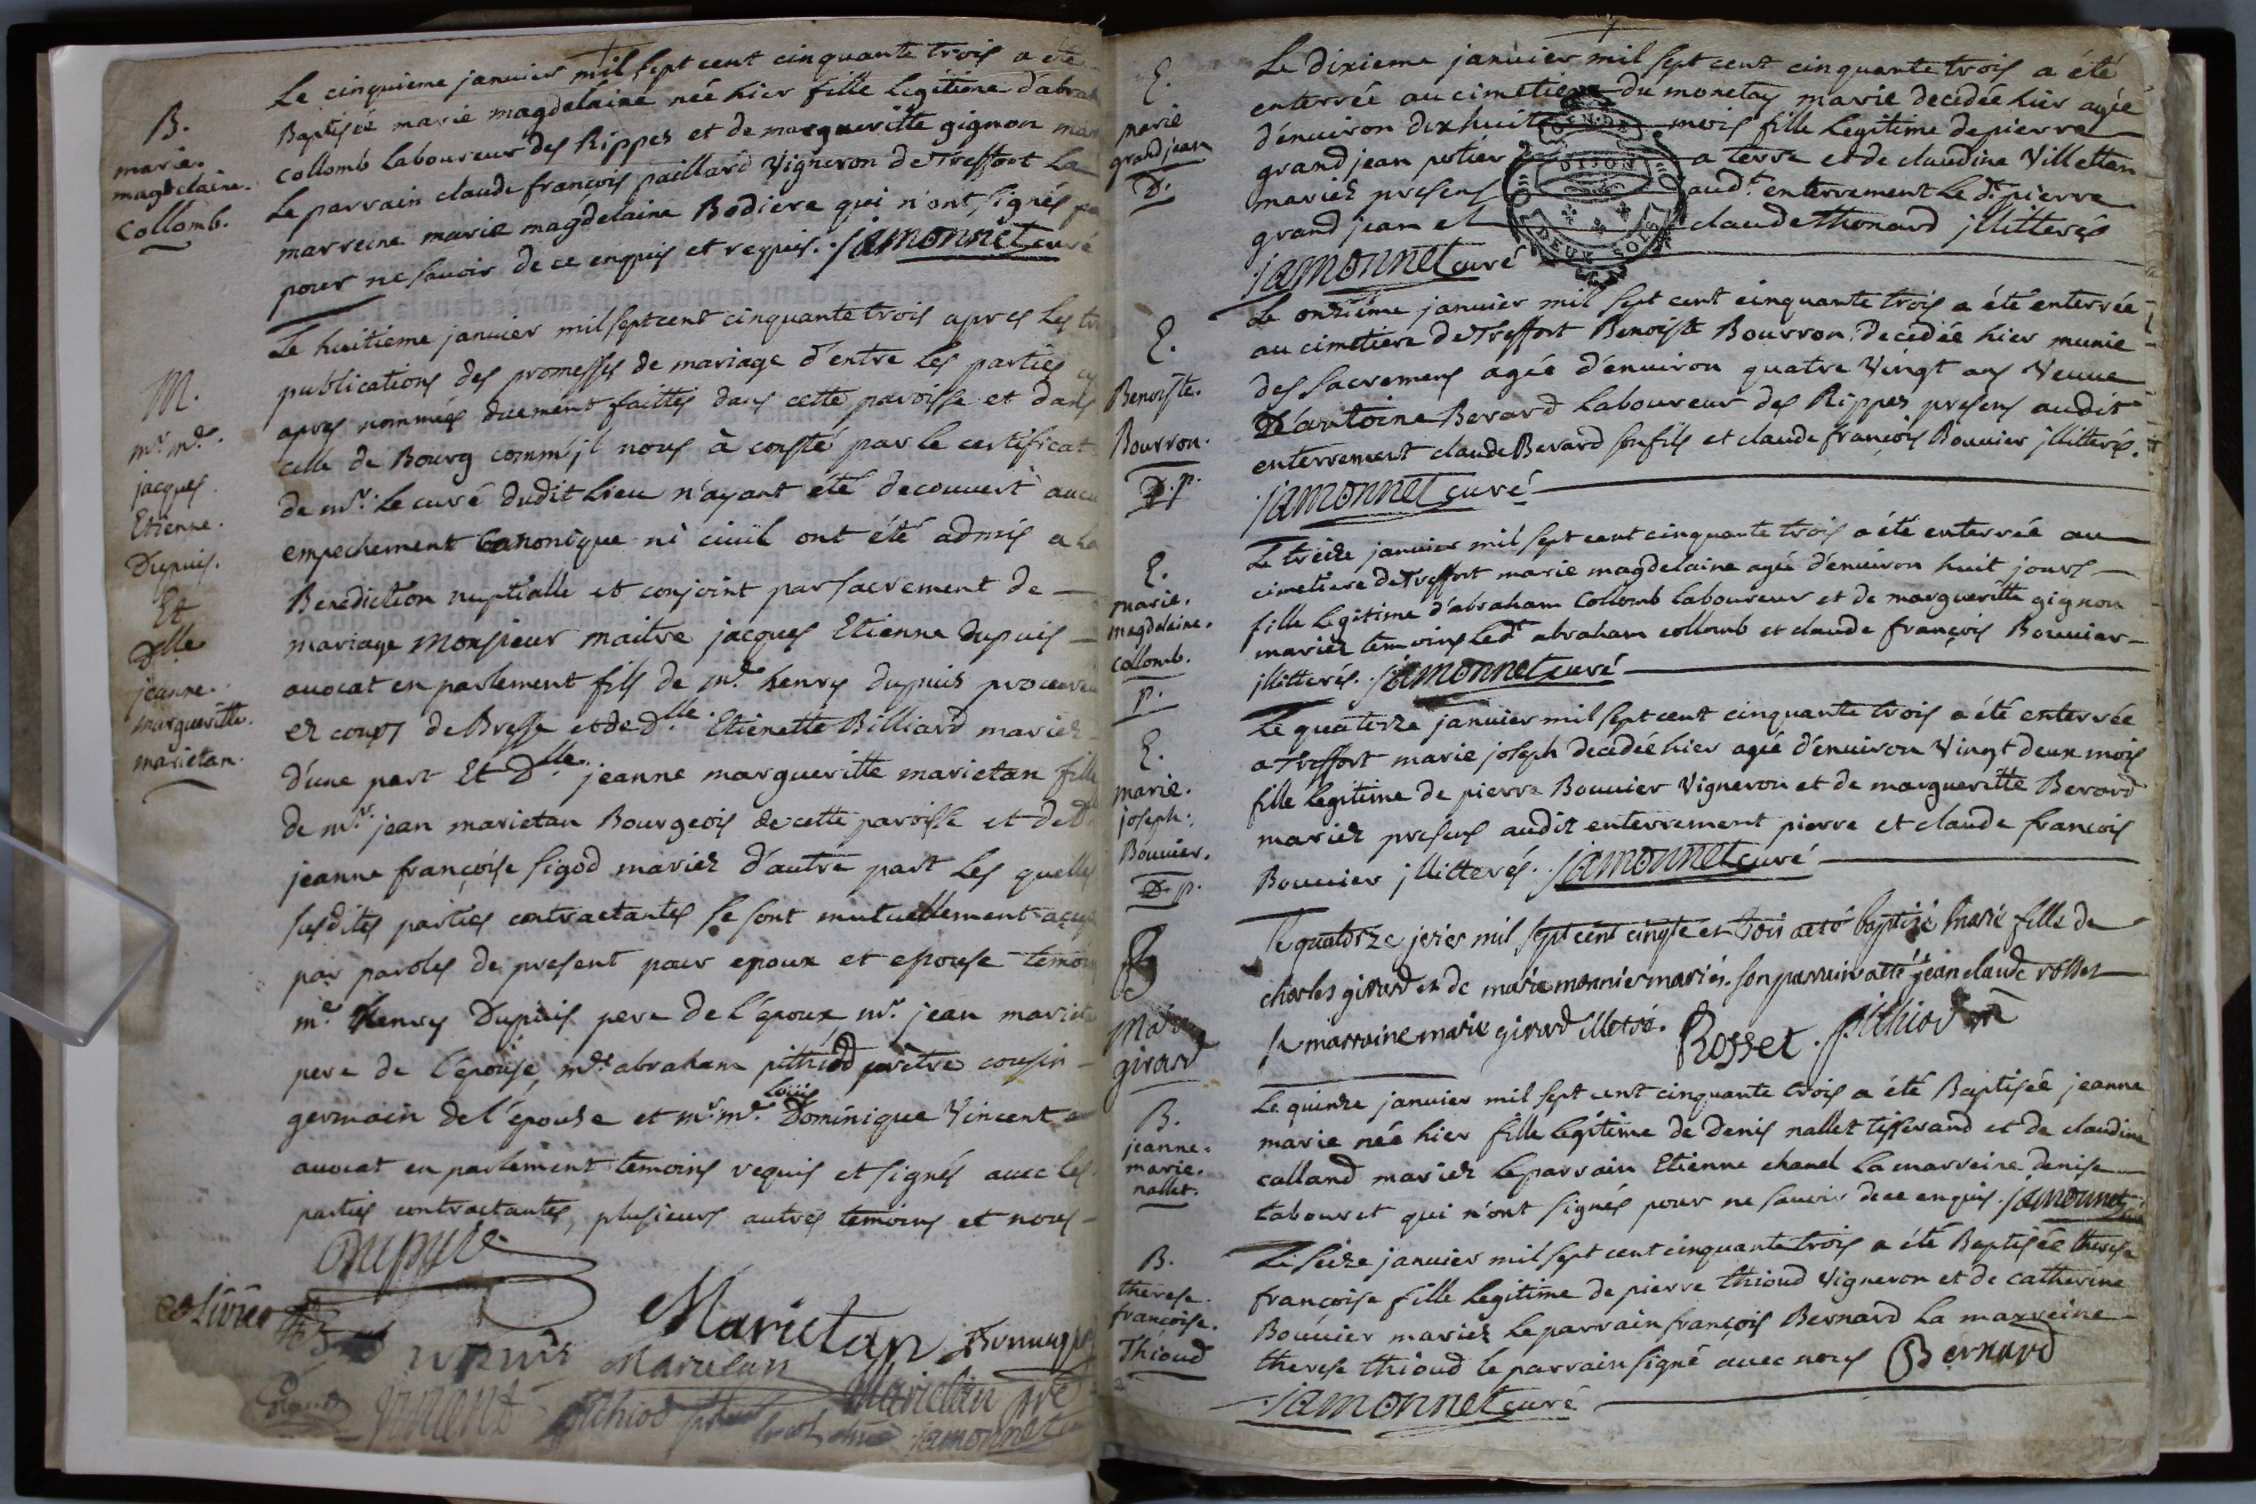 B.
marie.
magdelaine.
Collomb.
Le cinquieme janvier mil sept cent cinquante trois a été
Baptisée marie magdelaine née hier fille legitime d'abrah
collomb laboureur des Rippes et de margueritte gignon mar
Le parrain claude françois paillard Vigneron de Treffort La
marreine marie magdelaine Bodiere qui n'ont signés pa
pour ne sauoir de ce enquis et requis. jamonnet curé
M.
mr. me.
jacques.
Etienne.
Dupuis.
Et
Dlle
jeanne.
margueritte.
marietan.
Le huitieme janvier mil sept cent cinquante trois apres les tr
publications des promesses de mariage d'entre les parties cy
apres nommés duement faittes dans cette paroisse et dans
celle de Bourg comm'jl nous à consté par le certificat
de mr. le curé dudit Lieu n'ayant été decouvert aucu
empechement Canonique ni ciuil ont été admis a la
Benediction nuptialle et conjoint par sacrement de
mariage Monsieur maitre jacques Etienne Dupuis
auocat en parlement fils de me. henry dupuis procureur
ez cours de Bresse et de Dlle. Etienette Billiard mariez
d'une part Et Dlle. jeanne margueritte marietan fille
de mr. jean marietan Bourgeois de cette paroisse et de D
jeanne françoise sigod mariez d'autre part Les quelles
susdites parties contractantes se sont mutuellement
par paroles de present pour epoux et epouse temoins
me henry Dupuis pere de l'époux mr. jean marieta
pere de l'épouse, mre abraham pithiod prètre cousin
germain de l'épouse et mr. me. Louis Dominique Vincent
auocat en parlement temoins requis et signés auec les
parties contractantes, plusieurs autres temoins et nous
Dupuis
Marietan
Marietan
Vincent
pithiod
Marietan pre
jamonnet
E.
marie
grandjean
D.
Le dixieme janvier mil sept cent cinquante trois a été
enterrée au cimetiere du monetay marie decedée hier agée
d'enuiron dixhuit mois fille legitime de pierre
grand jean potier a terre et de claudine Villettan
mariez presens aud.t enterrement le d. pierre
grand jean et claude Thonard jllitterés
jamonnet curé
GEN. DE
DIJON
DEUX SOLS
E.
Benoiste.
Bourron.
D. p.
Le onzième janvier mil sept cent cinquante trois a été enterrée
au cimetiere de Treffort Benoiste Bourron decedée hier munie
des sacremens agée d'enuiron quatre Vingt ans Veuue
D'antoine Berard laboureur des Rippes presens audit
enterrement claude Berard son fils et claude françois Bouuier jllitterés.
jamonnet curé
E.
marie.
magdelaine.
collomb.
p.
Le treize janvier mil sept cent cinquante trois a été enterrée au
cimetiere de Treffort marie magdelaine agée d'enuiron huit jours
fille legitime d'abraham Collomb laboureur et de margueritte gignon
mariez temoins led.t abraham collomb et claude françois Bouuier
jllitterés. jamonnet curé
E.
marie.
joseph.
Bouuier.
D. p.
Le quatorze janvier mil sept cent cinquante trois a été enterrée
a Treffort marie joseph decedée hier agée d'enuiron Vingt deux mois
fille legitime de pierre Bouuier Vigneron et de margueritte Berard
mariez presens audit enterrement pierre et claude françois
Bouuier jllitterés. jamonnet curé
B
Marie
girard
Le quatorze jevier mil sept cent cinqte et trois a eté baptizé marie fille de
charles girard et de marie monnier mariés. son parrain a eté jean claude rosset
sa marraine marie girard illetré. Rosset. pithiod
B.
jeanne.
marie.
nallet.
Le quinze janvier mil sept cent cinquante trois a été Baptisée jeanne
marie née hier fille légitime de Denis nallet tisserand et de claudine
calland mariez le parrain Etienne chanel la marreine denise
tabouret qui n'ont signés pour ne sauoir de ce enquis. jamonnet curé
B.
therese.
françoise.
Thioud
Le seize janvier mil sept cent cinquante trois a été Baptisée therese
françoise fille legitime de pierre thioud Vigneron et de catherine
Bouuier mariez le parrain françois Bernard la marreine
therese thioud le parrain signé auec nous Bernard
jamonnet curé